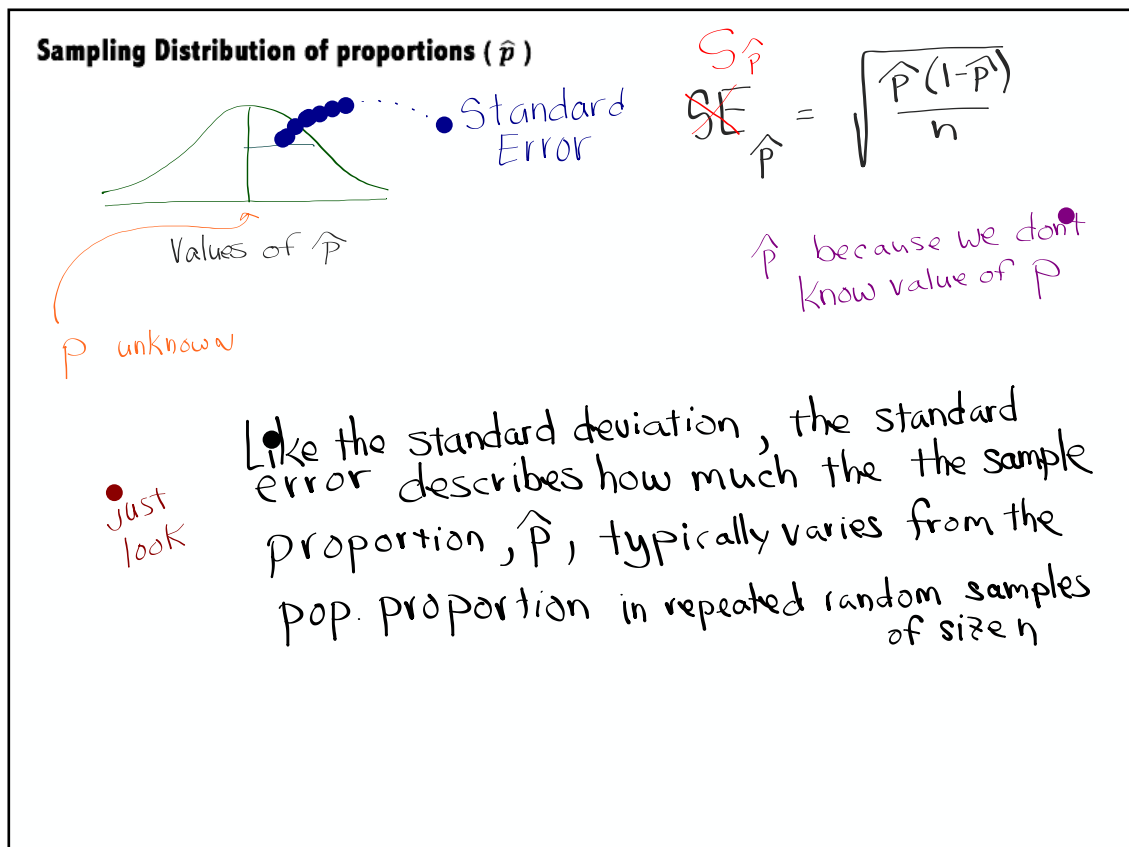 Sampling Distribution of proportions ( p̂ )
S p̂
SE p̂ = √ p̂ (1-p̂) / n
Standard
Error
Values of p̂
p unknown
p̂ because we don't
know value of p
Like the standard deviation, the standard
error describes how much the the sample
proportion, p̂, typically varies from the
pop. proportion in repeated random samples
of size n
just
look